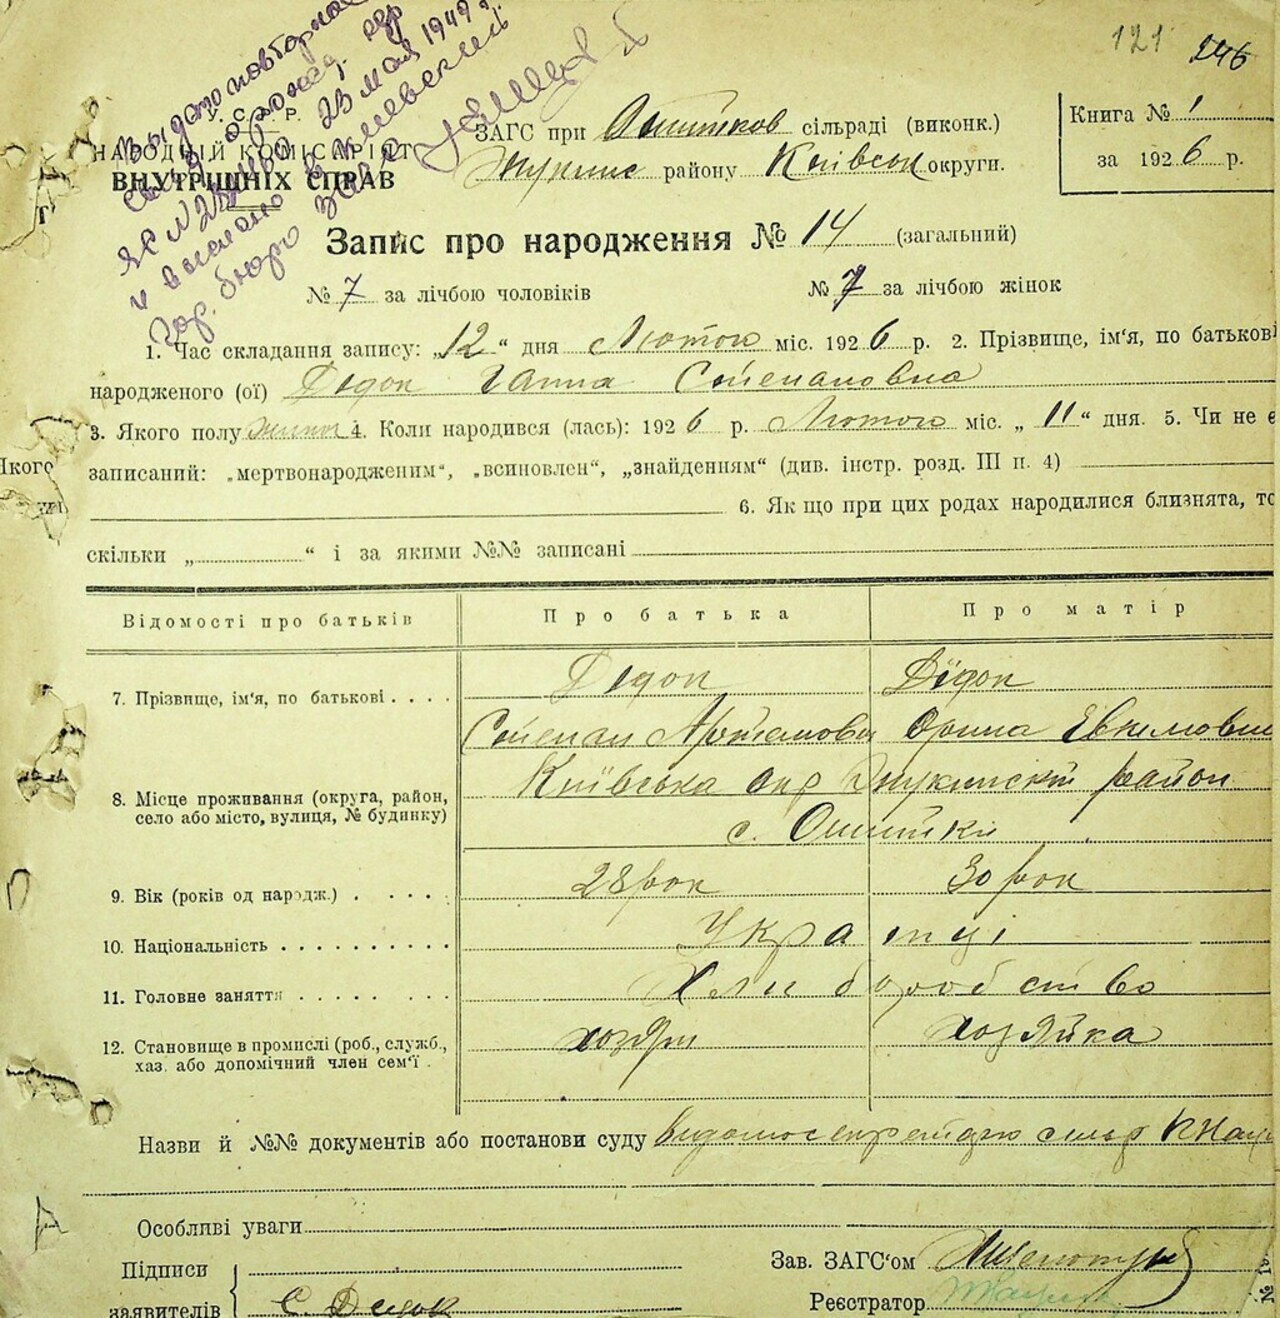 121 246
Выдано повторное
свид. о рожд.
ЯР № 23 мая 1949 г.
и выслано в Киевский
гор. бюро ЗАГС
У. С. Р. Р.
НАРОДНІЙ КОМІСАРІЯТ
ВНУТРІШНІХ СПРАВ
ЗАГС при Ошитков сільраді (виконк.)
Жукинс району Київськ округи.
Книга № 1
за 1926 р.
Запис про народження № 14 (загальний)
№ 7 за лічбою чоловіків № 7 за лічбою жінок
1. Час складання запису: „12“ дня Лютого міс. 1926 р. 2. Прізвище, ім'я, по батькові
народженого (ої) Дєдок Ганна Степановна
3. Якого полу жіноч 4. Коли народився (лась): 1926 р. Лютого міс. „11“ дня. 5. Чи не є
записаний: „мертвонародженим“, „всиновлен“, „знайденням“ (див. інстр. розд. III п. 4)
6. Як що при цих родах народилися близнята, то
скільки „ “ і за якими №№ записані
Відомості про батьків Про батька Про матір
7. Прізвище, ім'я, по батькові . . . . Дєдок Дєдок
Степан Артанови Орина Евхимовн
8. Місце проживання (округа, район,
село або місто, вулиця, № будинку)
Київська окр Жукинскй район
с. Ошитки
9. Вік (років од народж.) . . . . 28 рок 30 рок
10. Національність . . . . . . . . . . Українці
11. Головне заняття . . . . . . . . Хлиборобство
12. Становище в промислі (роб., службр.,
хаз. або допомічний член сем'ї .
хозяін хозяйка
Назви й №№ документів або постанови суду
Особливі уваги
Підписи
заявителів С. Дєдок
Зав. ЗАГС'ом
Реєстратор